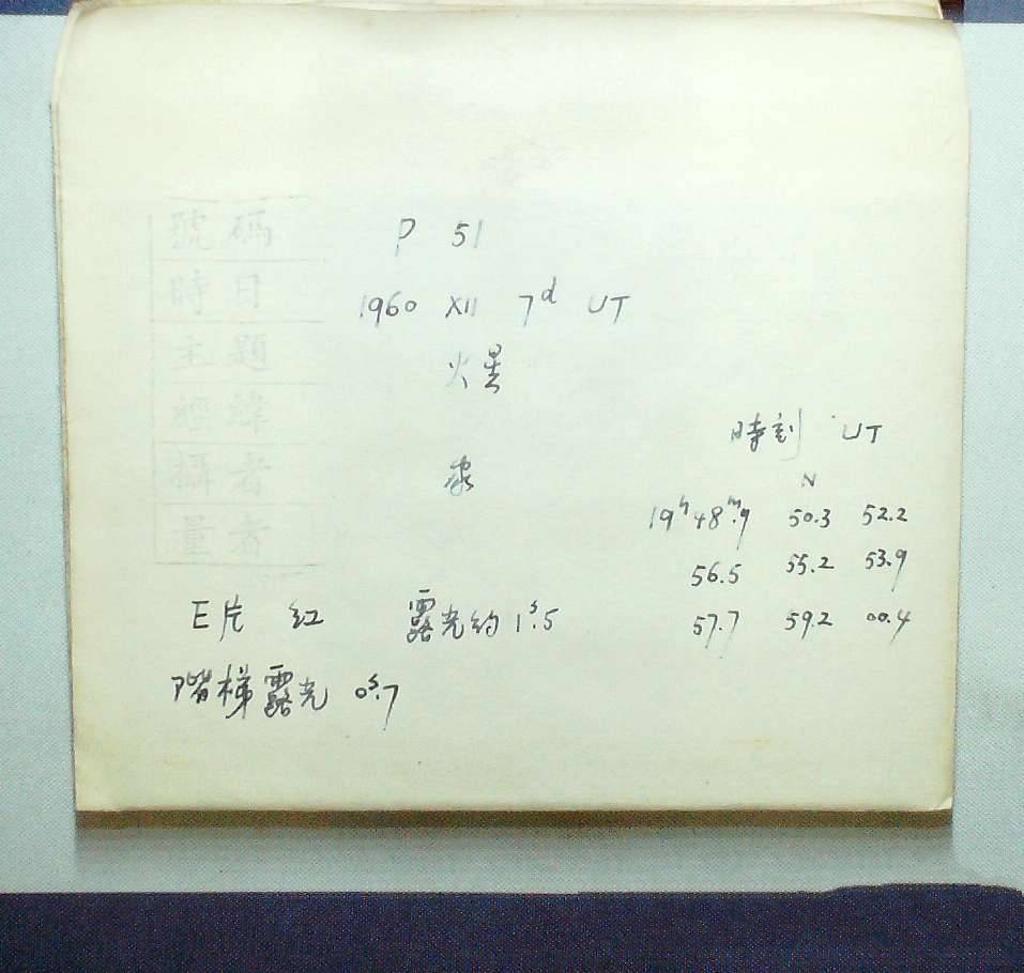 號碼 P 51
時日 1960 XII 7d UT
主題 火星
經緯
時刻 UT
攝者
N
19h48m.9 50.3 52.2
56.5 55.2 53.9
量者
E片 紅 露光約 1s.5
57.7 59.2 00.4
階梯露光 0s.7